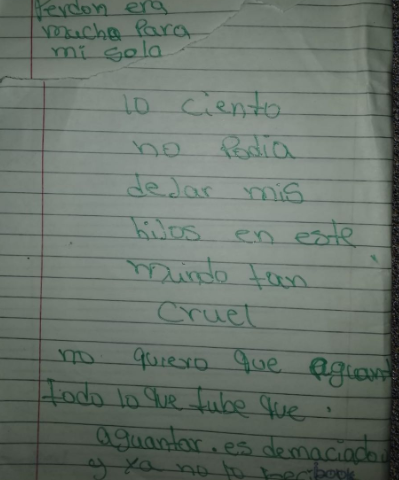 Perdon era
mucha Para
mi sola
lo ciento
no Podia
dejar mis
hijos en este
mundo tan
cruel
no quiero que aguan
todo lo que tube que
aguantar. es demaciado
y ya no lo